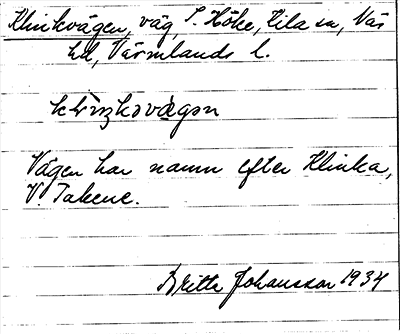 Klinkvägen, väg, S. Höke, Lila sn, Näs
hd, Värmlands l.
Vägen har namn efter Klinka,
V. Takene.
Britta Johansson 1934